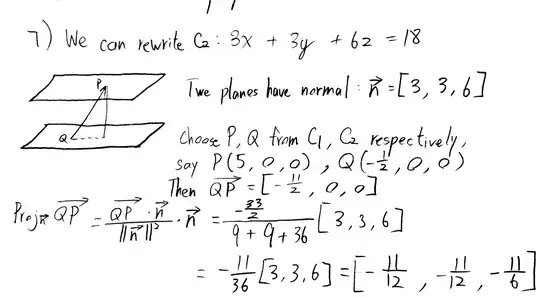 7) We can rewrite C₂: 3x + 3y + 6z = 18
P
Q
Two planes have normal: n⃗ = [3, 3, 6]
choose P, Q from C₁, C₂ respectively,
say P(5, 0, 0), Q(-1/2, 0, 0)
Then QP⃗ = [-11/2, 0, 0]
Proj n⃗ QP⃗ = (QP⃗ · n⃗)/(‖n⃗‖²) · n⃗ = (-33/2)/(9 + 9 + 36) [3, 3, 6]
= -11/36 [3, 3, 6] = [-11/12, -11/12, -11/6]